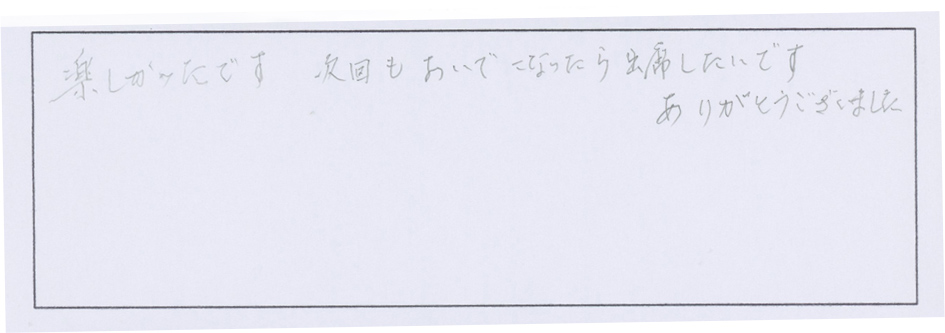 楽しかったです 次回も おいでになったら出席したいです
ありがとうございました